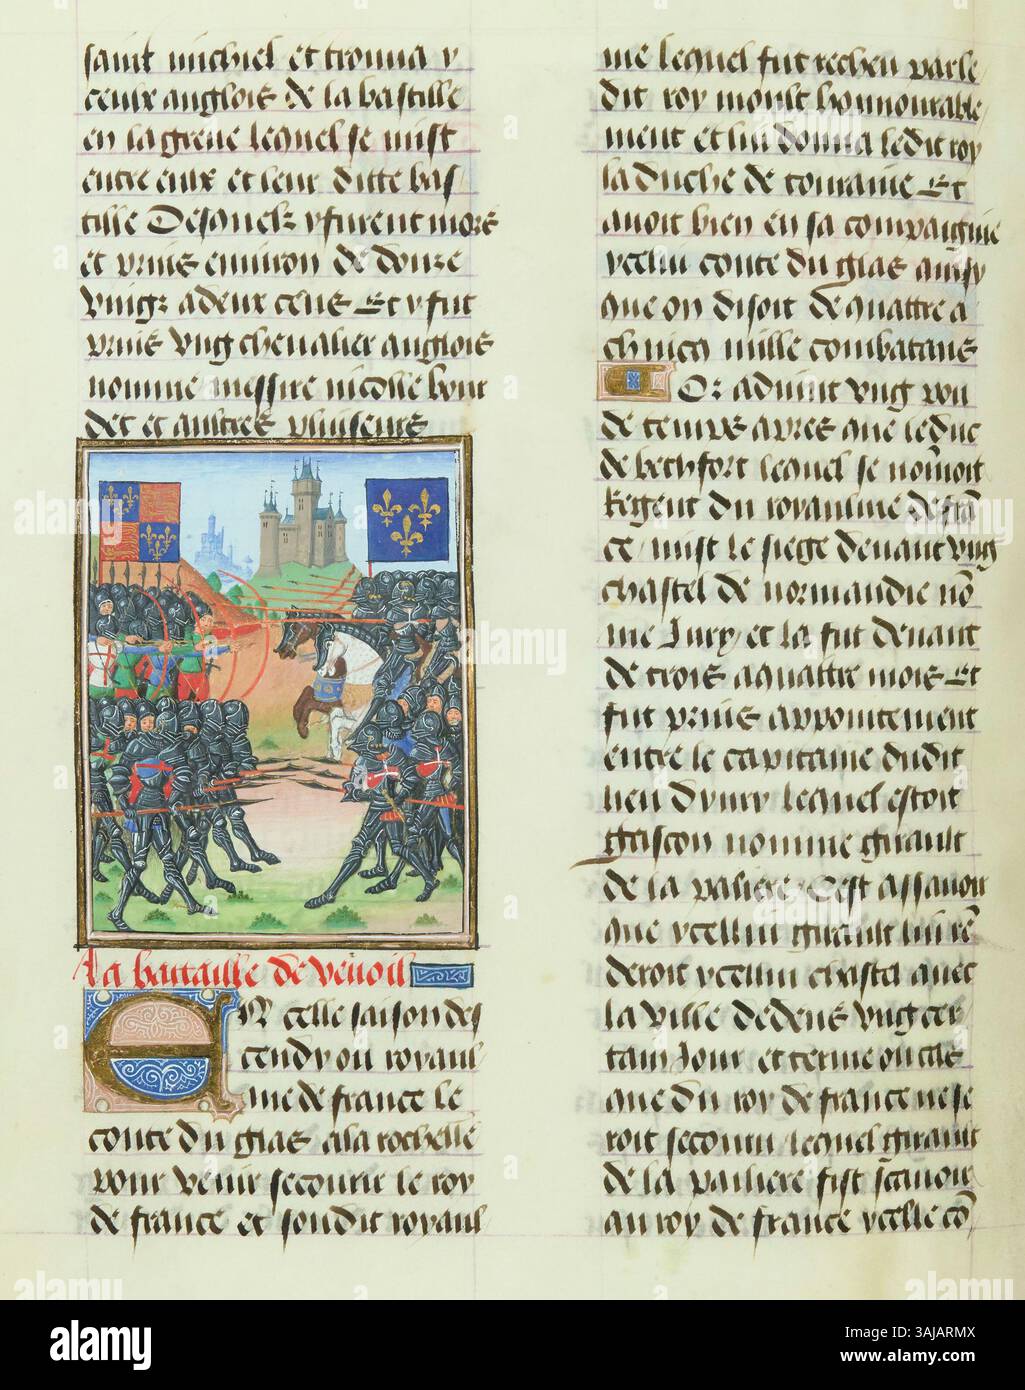 saint michiel et trouua y
ceulx anglois de la bastille
en la greue lequel se mist
entre eulx et leur ditte bas
tille Desquelz y furent mors
et prins enuiron de douze
vingz a deux cens Et y fut
prins vng cheualier anglois
nomme messire nicolle bour
det et aultres pluiseurs
La battaille de vernoil
EN celle saison des
cendy ou royaul
me de france le
conte du glas a la rochelle
pour venir secourir le roy
de france et son dit royaul
me lequel fut recheu par le
dit roy moult honnourable
ment et lui donna ledit roy
la duche de touraine Et
auoit bien en sa compaignie
ycellui conte du glas ainsy
que on disoit de quattre a
chincq mille combatans
Or aduint vng pou
de temps apres que le duc
de bethfort lequel se nōmoit
Regent du royaulme de frā
ce / mist le siege deuant vng
chastel de normandie nō
me Jury / et la fut deuant
de trois a quattre mois Et
fut prins appointement
entre le capitaine dudit
lieu dyury lequel estoit
gascon nomme girault
de la paliere / C'est assauoir
que ycellui girault lui rē
deroit ycellui chastel auec
la ville dedens vng cer
tain Jour et terme ou cas
que du roy de france ne se
roit secouru / lequel girault
de la palliere fist sçauoir
au roy de france ycelle cō
alamy
Image ID: 3AJARMX
www.alamy.com